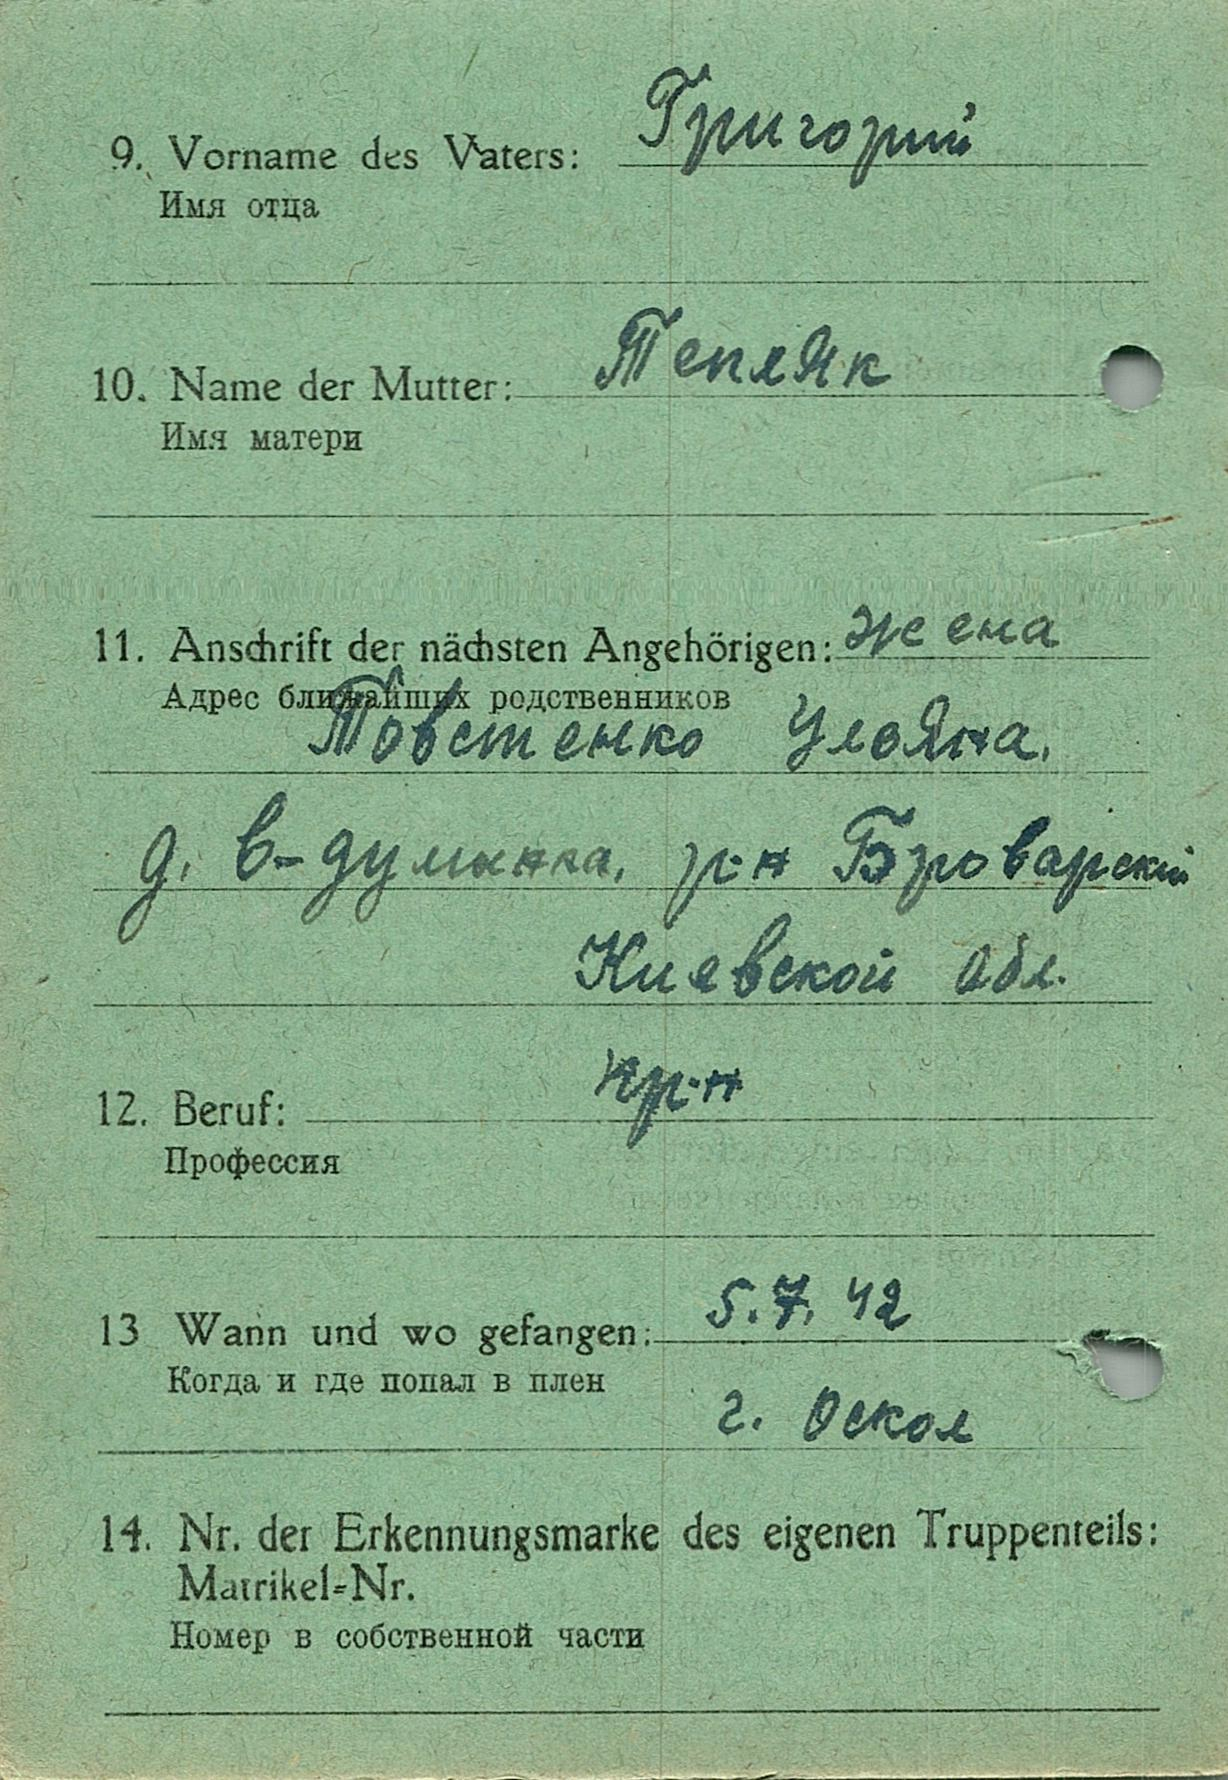 9. Vorname des Vaters: Григорий
Имя отца
10. Name der Mutter: Тепляк
Имя матери
11. Anschrift der nächsten Angehörigen: жена
Адрес ближайших родственников
Товстенко Ульяна,
д. В-Думанка, р-н Броварский
Киевской обл.
12. Beruf: кр-н
Профессия
13 Wann und wo gefangen: 5.7.42
Когда и где попал в плен
г. Оскол
14. Nr. der Erkennungsmarke des eigenen Truppenteils:
Matrikel-Nr.
Номер в собственной части